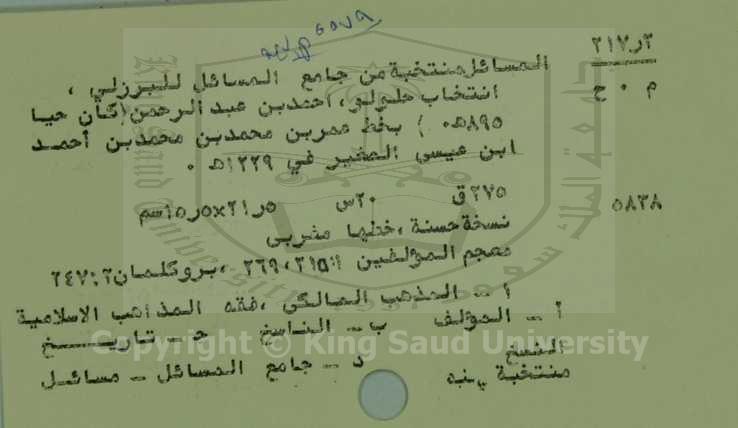 ٢١٧٫٣
م ٠ ح
المسائل منتخبة من جامع المسائل للبرزلي ،
انتخاب حلولو، احمد بن عبد الرحمن (كان حيا
٨٩٥هـ٠ ) بخط عمر بن محمد بن محمد بن أحمد
ابن عيسى المغبر في ١٢٢٩هـ ٠
٥٨٣٨
٢٧٥ق ٢٠س ٢١٫٥x١٥٫٥سم
نسخة حسنة ،خطها مغربى
معجم المؤلفين ٢١٥:١، ٢٦٩ ،بروكلمان٢٤٧:٢
١- المذهب المالكى ،فقه المذاهب الاسلامية
أ- المؤلف ب- الناسخ ج- تاريخ
النسخ د- جامع المسائل - مسائل
منتخبة منه
Copyright © King Saud University